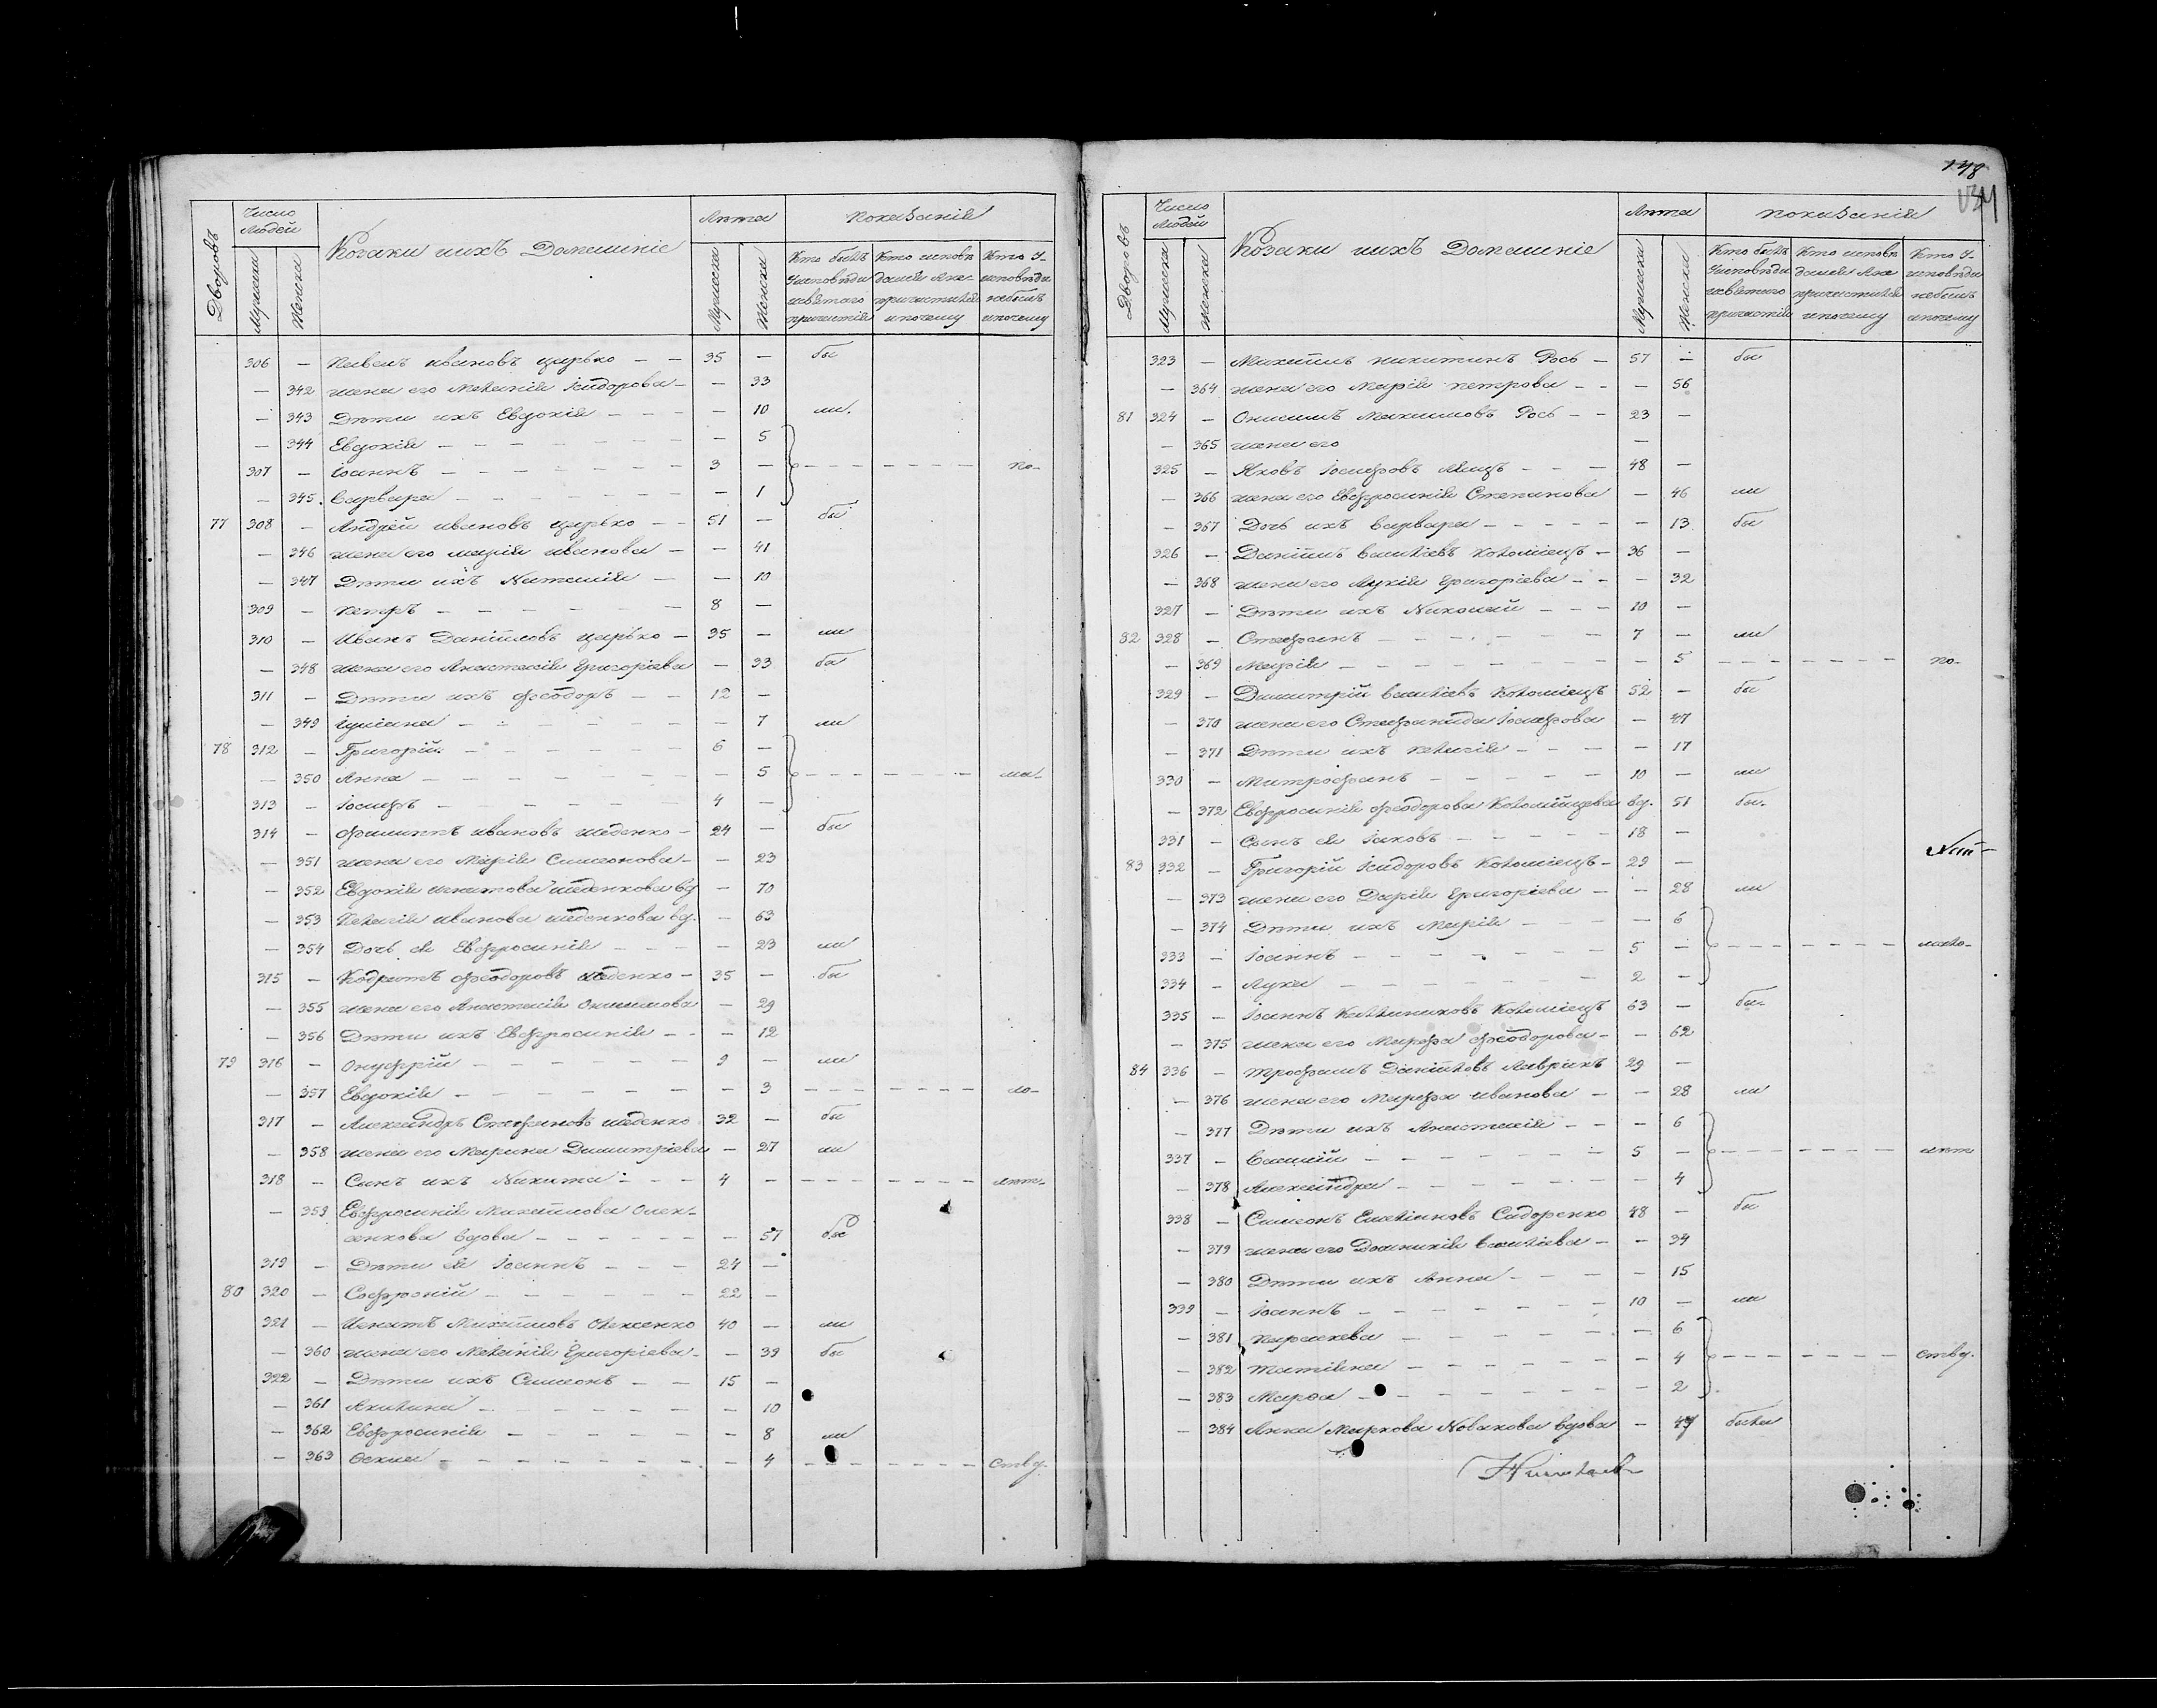 Число
Людей
Лѣта
Показанія
Дворовъ
Мужеска
Женска
Козаки ихъ Домашніе
Мужеска
Женска
Кто былъ
Уисповѣди
исвѣтаго
причастія
Кто исповѣ
дался Ане-
причастился
ипочему
Кто У-
исповѣди
небылъ
ипочему
306 — Павелъ ивановъ царько — — 35 — бы
— 342 жена его Меланія Ісидорова — — 33
— 343 Дѣти ихъ Евдокія — — — — 10 ли.
— 344 Евдокія — — — — — — — 5
307 — Іоаннъ — — — — — — 3 — по-
— 345 Варвара — — — — — — — 1
77 308 — Андрей ивановъ царько — — 51 — бы
— 346 жена его марія иванова — — 41
— 347 Дѣти ихъ Наталія — — 10
309 — петръ — — — — — — 8 —
310 — Иванъ Даніиловъ царько — 35 — ли
— 348 жена его Анастасія Григоріева — 33 бы
311 — Дѣти ихъ Ѳеодоръ — — 12 —
— 349 Іуліана — — — — — — — 7 ли
78 312 — Григорій — — — — — — 6 —
— 350 Анна — — — — — — — 5 ма-
313 — Іосифъ — — — — — — 4 —
314 — филиппъ ивановъ шеденко — 24 — бы
— 351 жена его Марія Симеонова — — 23
— 352 Евдокія игнатова шеденкова вд — 70
— 353 Пелагія иванова шеденкова вд. — 63
— 354 Дочь ея Евфросинія — — — — 23 ли
315 — Кодратъ Ѳеодоровъ шеденко — 35 — бы
— 355 жена его Анастасія Онисимова — 29
— 356 Дѣти ихъ Евфросинія — — — 12
79 316 — Онуфрій — — — — — 9 — ли
— 357 Евдокія — — — — — — — 3 — — — — — — — ло-
317 — Александръ Стефановъ шеденко 32 — бы
— 358 жена его Марина Димитріева — 27 ли
318 — Сынъ ихъ Никита — — — 4 — — — — — — — — лѣт-
— 359 Евфросинія Михаилова Олек-
сенкова вдова — — — — — — — 57 бы
319 — Дѣти ея Іоаннъ — — — 24 —
80 320 — Софроній — — — — — — 22 —
321 — Игнатъ Михаиловъ Олексенко 40 — ли
— 360 жена его Меланія Григоріева — — 39 бы
322 — Дѣти ихъ Симеонъ — — 15 —
— 361 Акилина — — — — — — — 10
— 362 Евфросинія — — — — — — 8 ли
— 363 Оксна — — — — — — — 4 — — — — — — — ству.
178
Число
Людей
Лѣта
Показанія
Дворовъ
Мужеска
Женска
Козаки ихъ Домашніе
Мужеска
Женска
Кто былъ
Уисповѣди
исвѣтаго
причастія
Кто исповѣ
дался Ане
причастился
ипочему
Кто У-
исповѣди
небылъ
ипочему
323 — Михаилъ никитинъ Рось — 57 — бы
— 364 жена его Марія петрова — — — 56
81 324 — Онисимъ Максимовъ Рось — — 23 —
— 365 жена его —
325 — Яковъ Іосифовъ — — — 48 —
— 366 жена его Евфросинія Степанова — 46 ли
— 367 Дочь ихъ Варвара — — — — — — 13 бы
326 — Даніилъ Василіевъ Коломіецъ — 36 —
— 368 жена его Лукія Григоріева — — — 32
327 — Дѣти ихъ Николай — — — 10 —
82 328 — Стефанъ — — — — — — 7 — ли
— 369 Марія — — — — — — — — 5 — — — — — — — по-
329 — Димитрій Василіевъ Коломіецъ 52 — бы
— 370 жена его Стефанида Іосифова — 47
— 371 Дѣти ихъ Пелагія — — — — 17
330 — Митрофанъ — — — — — 10 — ли
— 372 Евфросинія Ѳеодорова Коломійцева вд. 51 бы.
331 — Сынъ ея Іаковъ — — — — — 18 —
83 332 — Григорій Ісидоровъ Коломіецъ — 29 —
— 373 жена его Дарія Григоріева — — 28 ли
— 374 Дѣти ихъ Марія — — — — 6
333 — Іоаннъ — — — — — — 5 — мало-
334 — Лука — — — — — — — 2 —
335 — Іоаннъ Каллиниковъ Коломіецъ 63 — бы-
— 375 жена его Марфа Ѳеодорова — — 62
84 336 — трофимъ Даніиловъ Лаврикъ 29 —
— 376 жена его Марфа иванова — — 28 ли
— 377 Дѣти ихъ Анастасія — — — 6
337 — Василій — — — — — — 5 — лѣт
— 378 Александра — — — — — — — 4
338 — Симеонъ Емеліановъ Сидоренко 48 — бы
— 379 жена его Домникія Василіева — — 34
— 380 Дѣти ихъ Анна — — — — — 15
339 — Іоаннъ — — — — — — — 10 — ли
— 381 параскева — — — — — — 6
— 382 татіана — — — — — — — 4 ству.
— 383 Марфа — — — — — — — 2
— 384 Анна Маркова Новакова вдова — 47 была